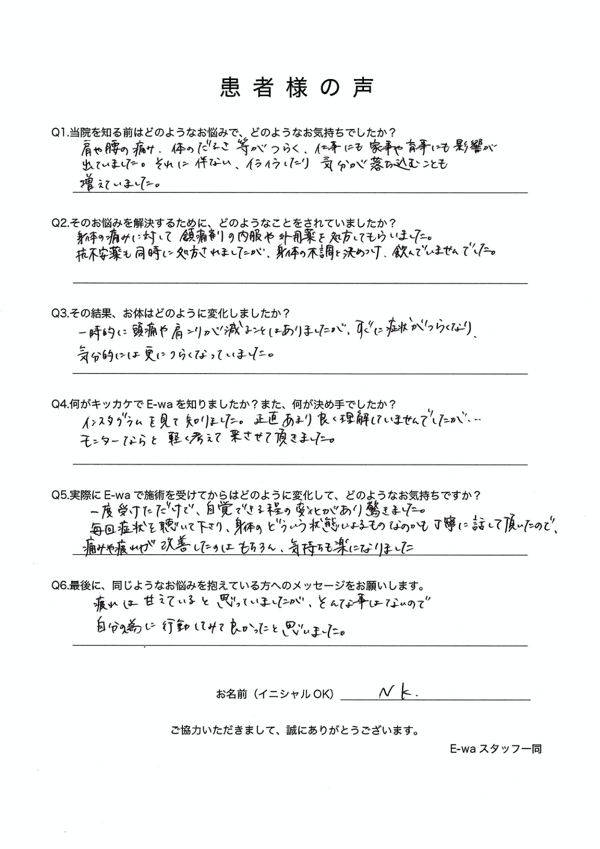 患者様の声
Q1.当院を知る前はどのようなお悩みで、どのようなお気持ちでしたか？
肩や腰の痛み、体のだるさ等がつらく、仕事にも家事や育事にも影響が
出ていました。それに伴ない、イライラしたり気分が落ち込むことも
増えていました。
Q2.そのお悩みを解決するために、どのようなことをされていましたか？
身体の痛みに対して鎮痛剤の内服や外用薬を処方してもらいました。
抗不安薬も同時に処方されましたが、身体の不調と決めつけ、飲んでいませんでした。
Q3.その結果、お体はどのように変化しましたか？
一時的に頭痛や肩こりが減ることはありましたが、すぐに症状がつらくなり、
気分的には更につらくなっていました。
Q4.何がキッカケでE-waを知りましたか？また、何が決め手でしたか？
インスタグラムを見て知りました。正直あまり良く理解していませんでしたが…
モニターならと軽く考えて来させて頂きました。
Q5.実際にE-waで施術を受けてからはどのように変化して、どのようなお気持ちですか？
一度受けただけで、自覚できる程の変化があり驚きました。
毎回症状を聴いて下さり、身体のどういう状態によるものなのかも丁寧に話して頂いたので、
痛みや疲れが改善したのはもちろん、気持ちも楽になりました
Q6.最後に、同じようなお悩みを抱えている方へのメッセージをお願いします。
疲れは甘えていると思っていましたが、そんな事はないので
自分の為に行動してみて良かったと思いました。
お名前（イニシャルOK） N k.
ご協力いただきまして、誠にありがとうございます。
E-waスタッフ一同